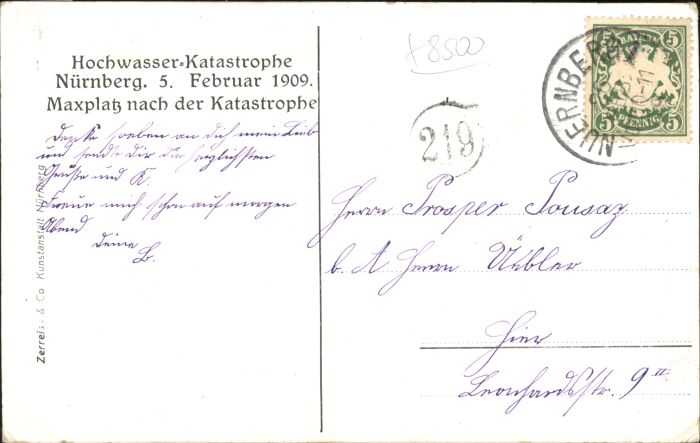 Hochwasser-Katastrophe
Nürnberg. 5. Februar 1909.
Maxplatz nach der Katastrophe
Denke soeben an dich mein Lieb
und sende dir die herzlichsten
Grüße und K.
Freue mich schon auf morgen
Abend
Deine
B.
Zerreiss & Co Kunstanstalt Nürnberg
+8500
219
NUERNBERG
5 BAYERN 5
5 PFENNIG 5
Herrn Prosper Pousaz
b. A Herrn Uebler
Hier
Leonhardsstr. 9 II